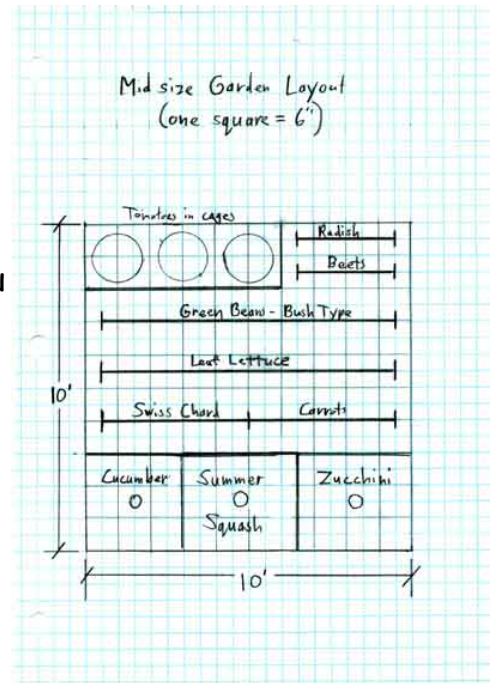 Mid size Garden Layout
(one square = 6")
Tomatoes in cages
Radish
Beets
Green Beans - Bush Type
Leaf Lettuce
10'
Swiss Chard
Carrots
Cucumber
Summer
Squash
Zucchini
10'